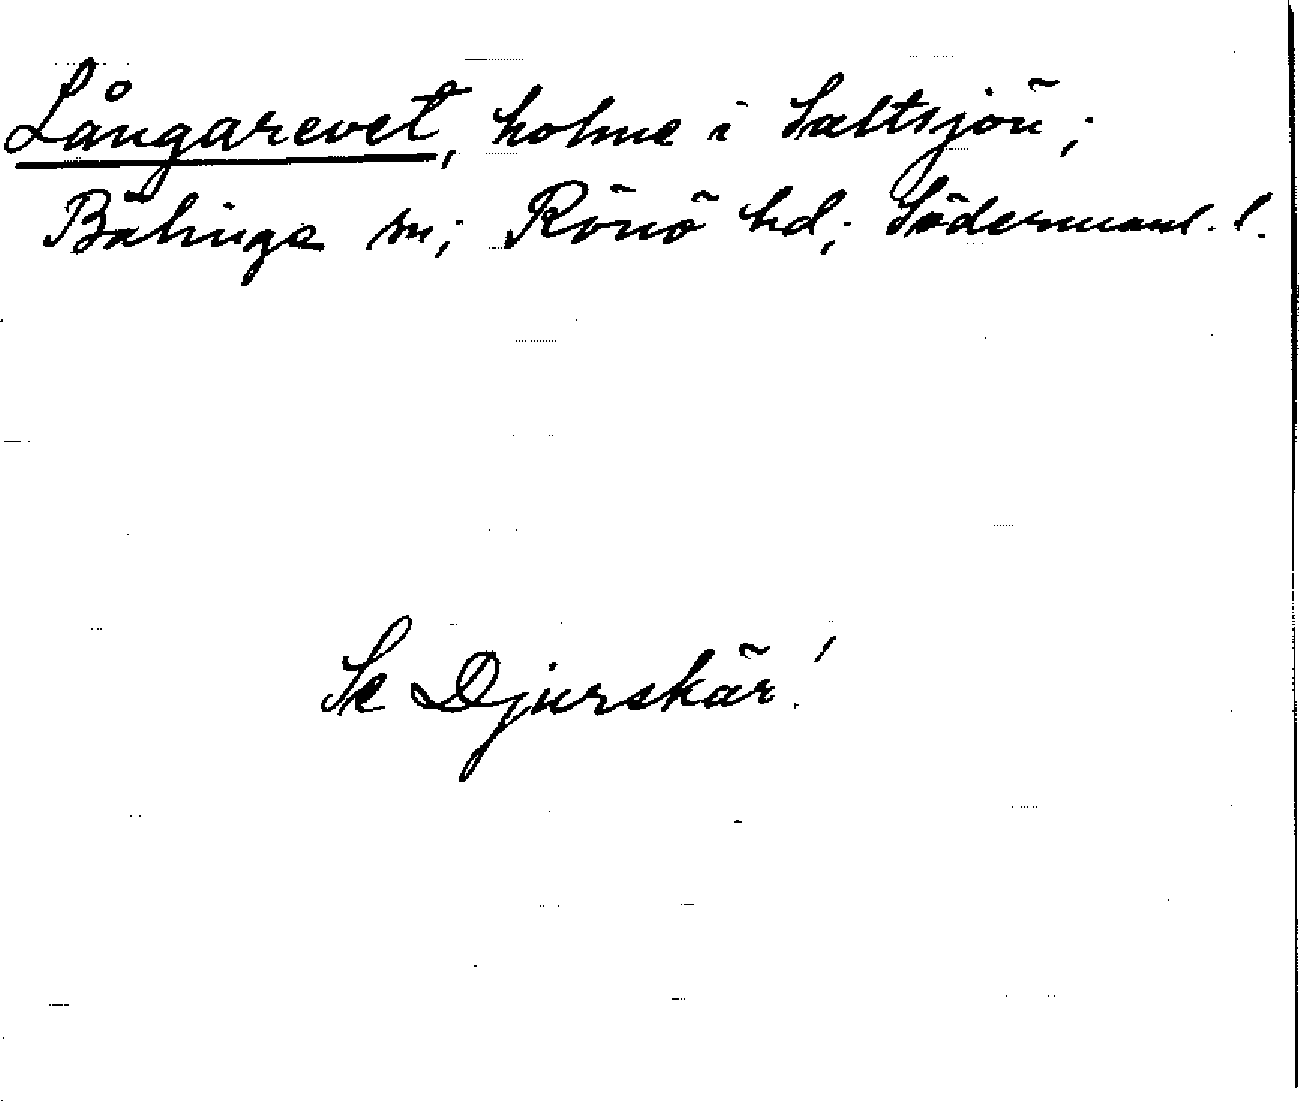 Långarevet, holme i Saltsjön;
Bälinge sn; Rönö hd; Södermanl. l.
Se Djurskär!